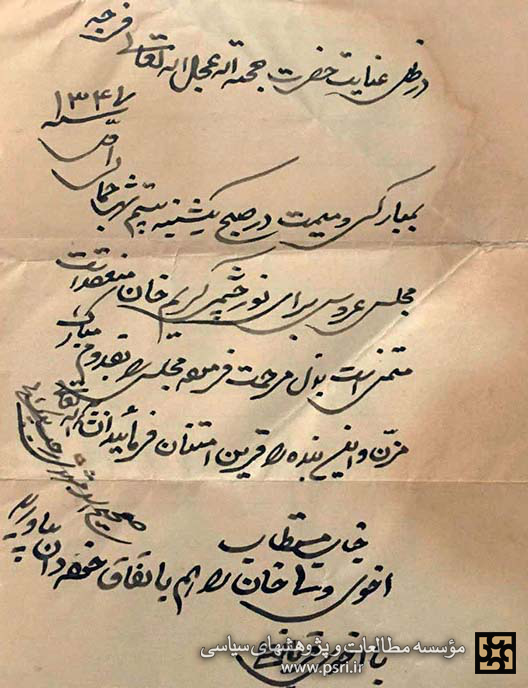 در ظل عنایت حضرت حجة الله عجل الله تعالی فرجه
بمبارکی و میمنت در صبح یکشنبه بیستم شهر جمادی الاول سنه ۱۳۴۷
مجلس عروسی برای نورچشمی کریم خان منعقد است
متمنی است بذل مرحمت فرموده مجلس را بقدوم مبارک
مزین و اینبنده را قرین امتنان فرمائید انشاءالله تعالی
جناب مستطاب
اخوی خان را هم باتفاق خودتان بیاورید
با اخوی
مؤسسه مطالعات و پژوهشهای سیاسی
www.psri.ir